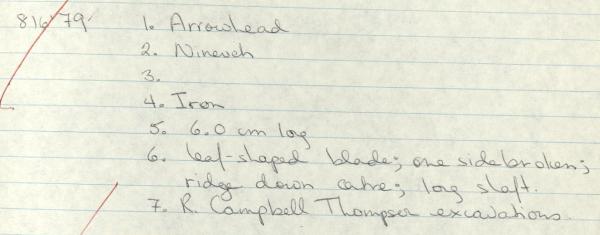 816'79 1. Arrowhead
2. Nineveh
3.
4. Iron
5. 6.0 cm long
6. leaf-shaped blade; one side broken;
ridge down centre; long shaft.
7. R. Campbell Thompson excavations.